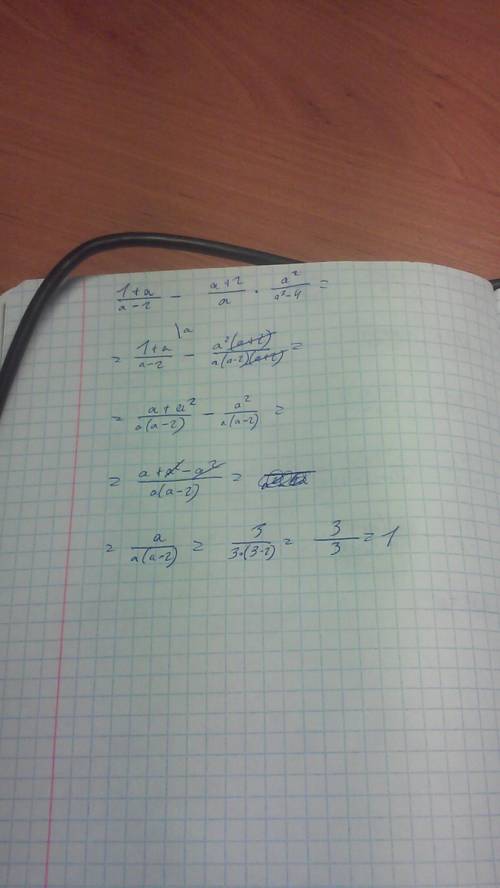 (1+a)/(a-2) - (a+2)/a · a²/(a²-4) =
= (1+a)/(a-2) \a - a²(a+2)/(a(a-2)(a+2)) =
= (a+a²)/(a(a-2)) - a²/(a(a-2)) =
= (a+a²-a²)/(a(a-2)) =
= a/(a(a-2)) = 3/(3·(3-2)) = 3/3 = 1